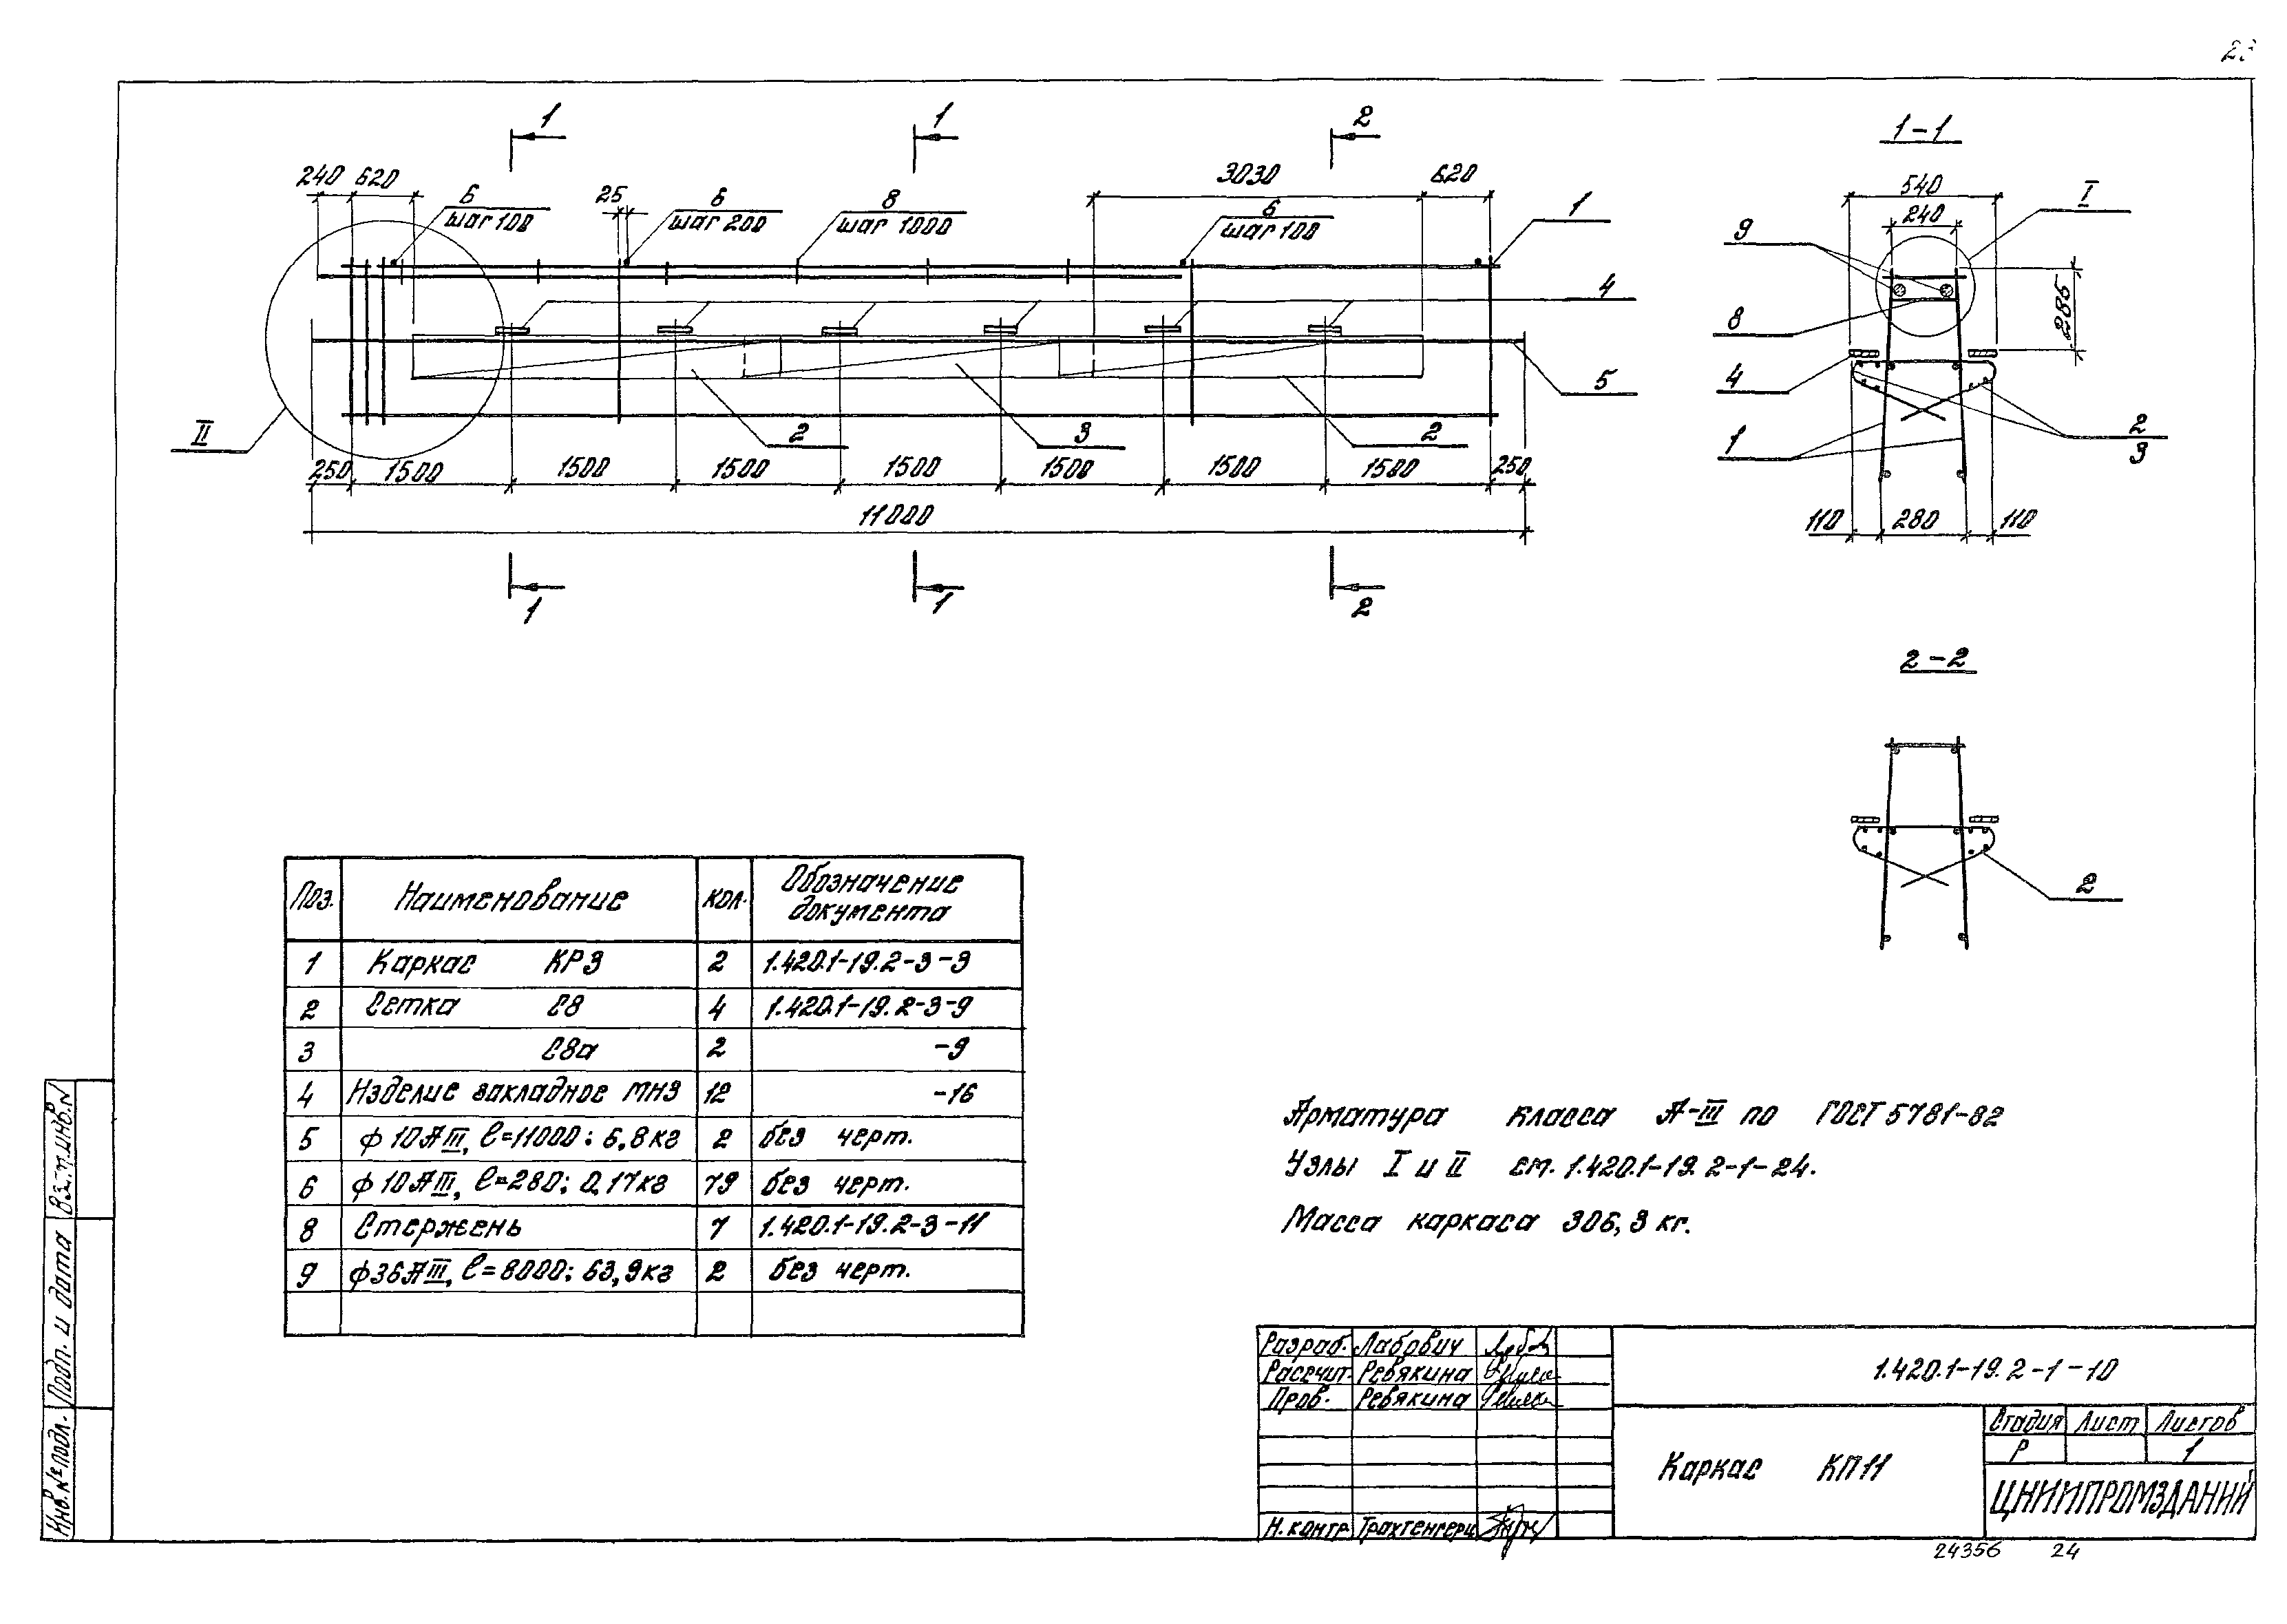 1 1 2
1-1
240 620 3030 620
540
240
6
шаг 100
25
6
шаг 200
8
шаг 1000
6
шаг 100
1
9
I
4
8
285
4
5
1
2
3
II
2 3 2
250 1500 1500 1500 1500 1500 1500 1500 250
11000
110 280 110
1 1 2
2-2
2
Поз. Наименование кол. Обозначение документа
1 Каркас КР3 2 1.420.1-19.2-3-3
2 Сетка С8 4 1.420.1-19.2-3-9
3 С8а 2 -9
4 Изделие закладное МН3 12 -16
5 ф10АIII, ℓ=11000; 6,8кг 2 без черт.
6 ф10АIII, ℓ=280; 0,17кг 79 без черт.
8 Стержень 7 1.420.1-19.2-3-11
9 ф36АIII, ℓ=8000; 63,9кг 2 без черт.
Арматура класса А-III по ГОСТ 5781-82
Узлы I и II см. 1.420.1-19.2-1-24.
Масса каркаса 306,3 кг.
Разраб. Лабович
Рассчит. Ревякина
Пров. Ревякина
Н. контр. Трахтенгерц
1.420.1-19.2-1-10
Каркас КП11
Стадия Лист Листов
Р 1
ЦНИИПРОМЗДАНИЙ
24356 24
Взт.инв.N
Подп. и дата
Инв.№подл.